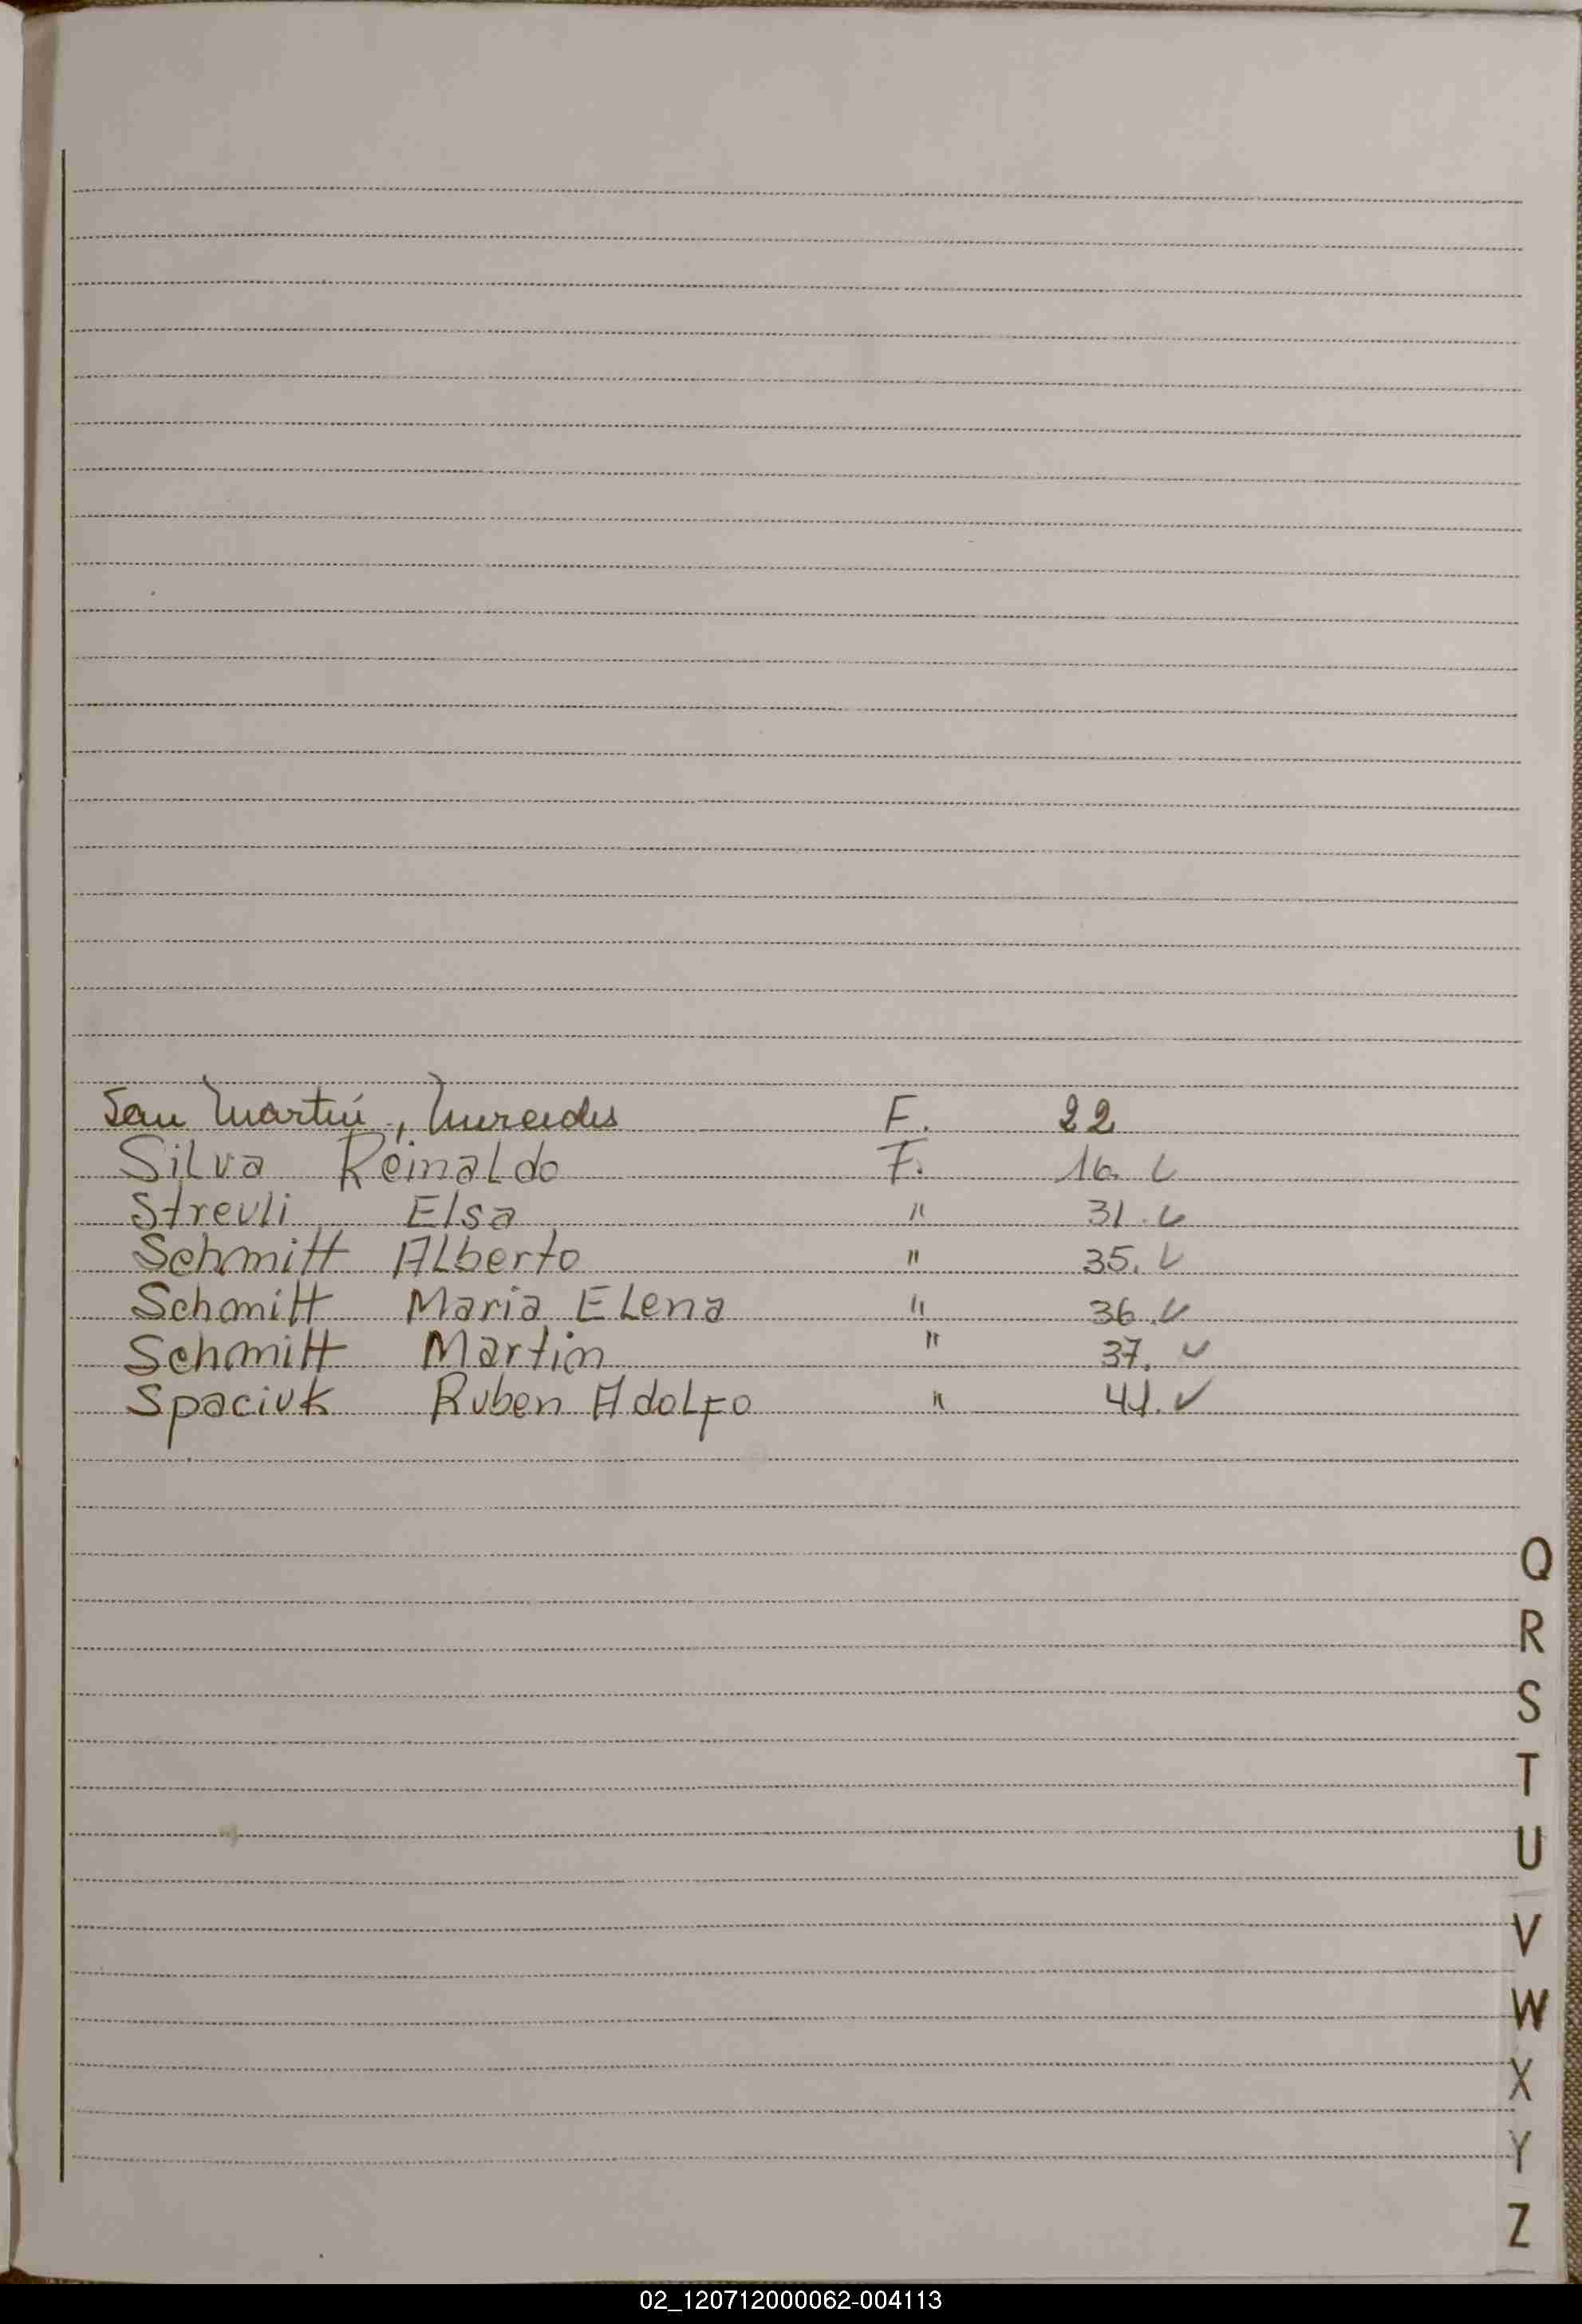 San Martín, Mercedes F. 22
Silva Reinaldo F. 16. ✓
Strevli Elsa " 31. ✓
Schmitt Alberto " 35. ✓
Schmitt Maria Elena " 36. ✓
Schmitt Martin " 37. ✓
Spaciuk Ruben Adolfo " 41. ✓
Q
R
S
T
U
V
W
X
Y
Z
02_120712000062-004113